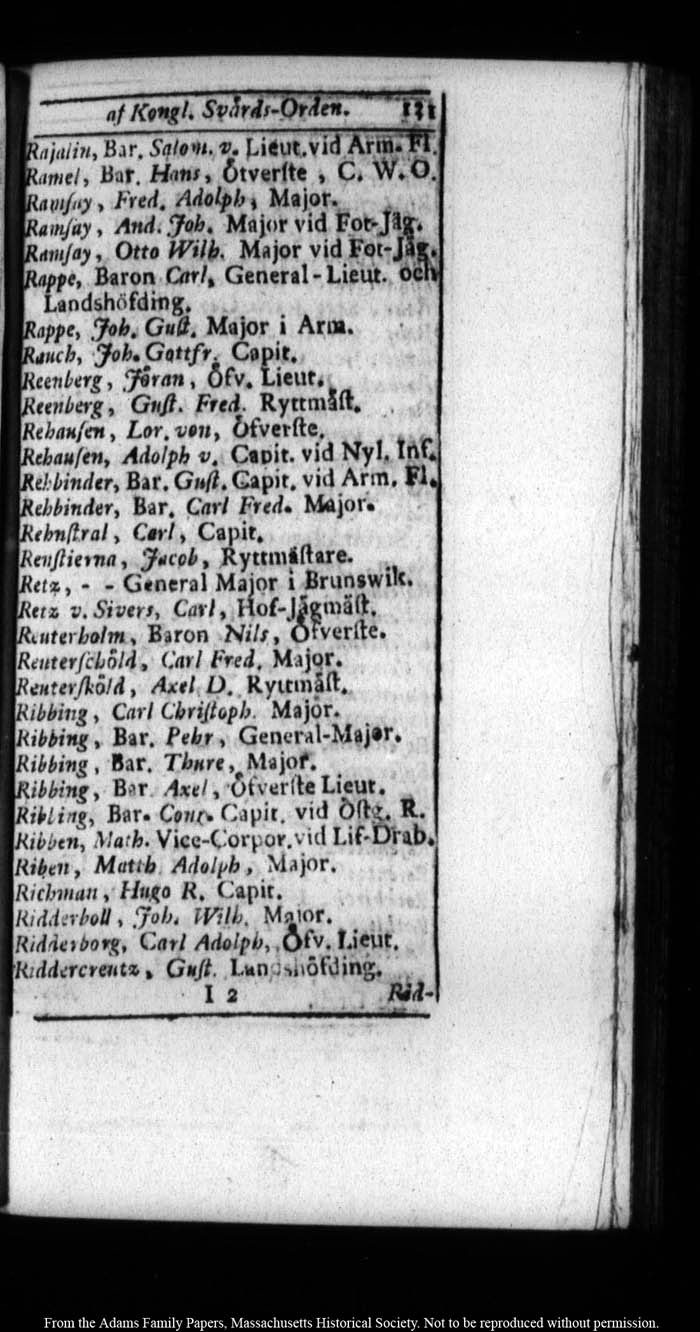 af Kongl. Svärds-Orden. 131
Rajalin, Bar. Salom. v. Lieut. vid Arm. Fl.
Ramel, Bar. Hans, Ötverſte, C. W. O.
Ramſay, Fred. Adolph, Major.
Ramſay, And. Joh. Major vid Fot-Jäg.
Ramſay, Otto Wilh. Major vid Fot-Jäg.
Rappe, Baron Carl, General-Lieut. och
Landshöfding.
Rappe, Joh. Guſt. Major i Arm.
Rauch, Joh. Gottfr. Capit.
Reenberg, Jöran, Öfv. Lieut.
Reenberg, Guſt. Fred. Ryttmäſt.
Rehauſen, Lor. von, Öfverſte.
Rehauſen, Adolph v. Capit. vid Nyl. Inf.
Rehbinder, Bar. Guſt. Capit. vid Arm. Fl.
Rehbinder, Bar. Carl Fred. Major.
Rehnſtral, Carl, Capit.
Renſtierna, Jacob, Ryttmäſtare.
Retz, - - General Major i Brunswik.
Retz v. Sivers, Carl, Hof-Jägmäſt.
Reuterholm, Baron Nils, Öfverſte.
Reuterſchöld, Carl Fred. Major.
Reuterſköld, Axel D. Ryttmäſt.
Ribbing, Carl Chriſtoph. Major.
Ribbing, Bar. Pehr, General-Major.
Ribbing, Bar. Thure, Major.
Ribbing, Bar. Axel, Öfverſte Lieut.
Ribbing, Bar. Conr. Capit. vid Öſtg. R.
Ribben, Math. Vice-Corpor. vid Lif-Drab.
Riben, Matth. Adolph, Major.
Richman, Hugo R. Capit.
Ridderboll, Joh. Wilh. Major.
Ridderborg, Carl Adolph, Öfv. Lieut.
Riddercreutz, Guſt. Landshöfding.
I 2 Rid-
From the Adams Family Papers, Massachusetts Historical Society. Not to be reproduced without permission.